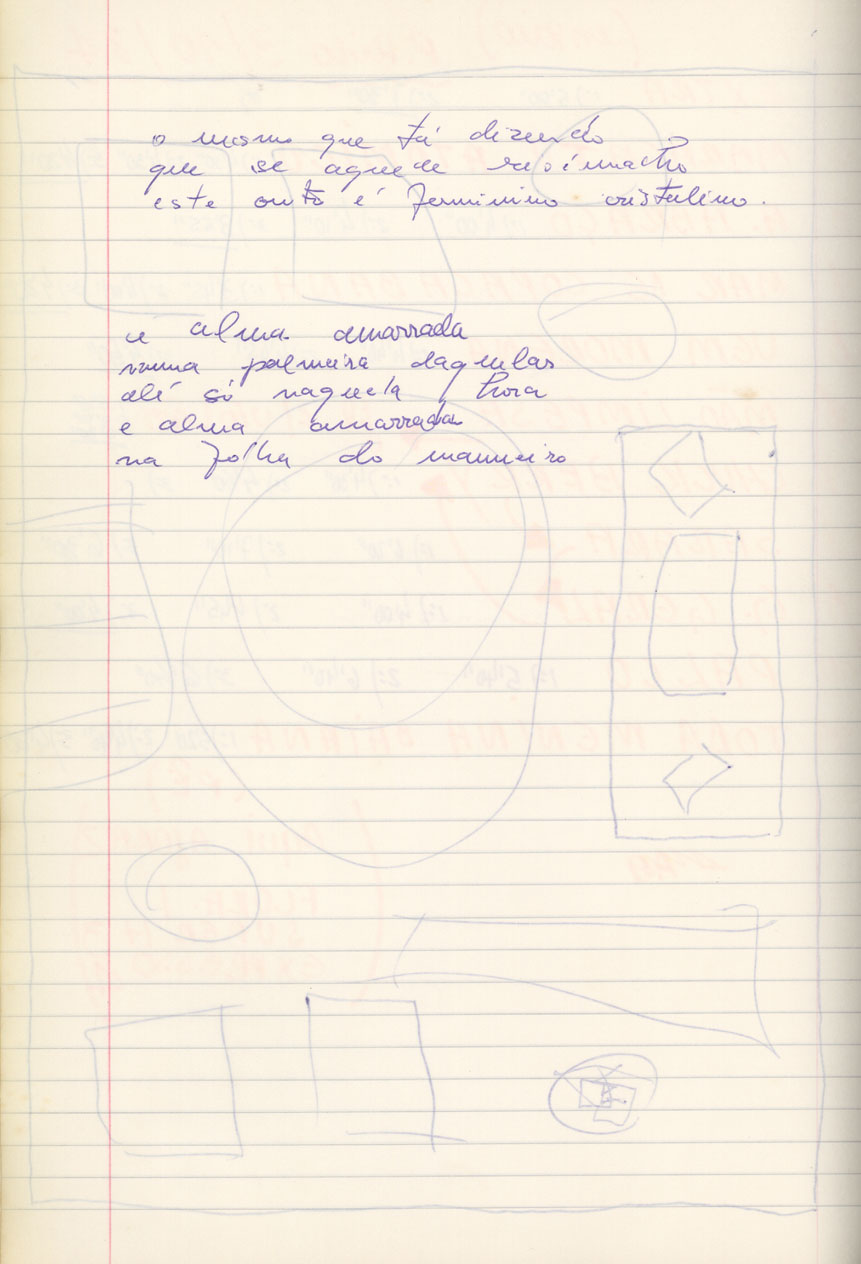 o mesmo que tá dizendo
que se aquece macho
este outo é feminino cristalino.
e alma amarrada
numa palmeira daquelas
até só naquela hora
e alma amarrada
na folha do mamoeiro